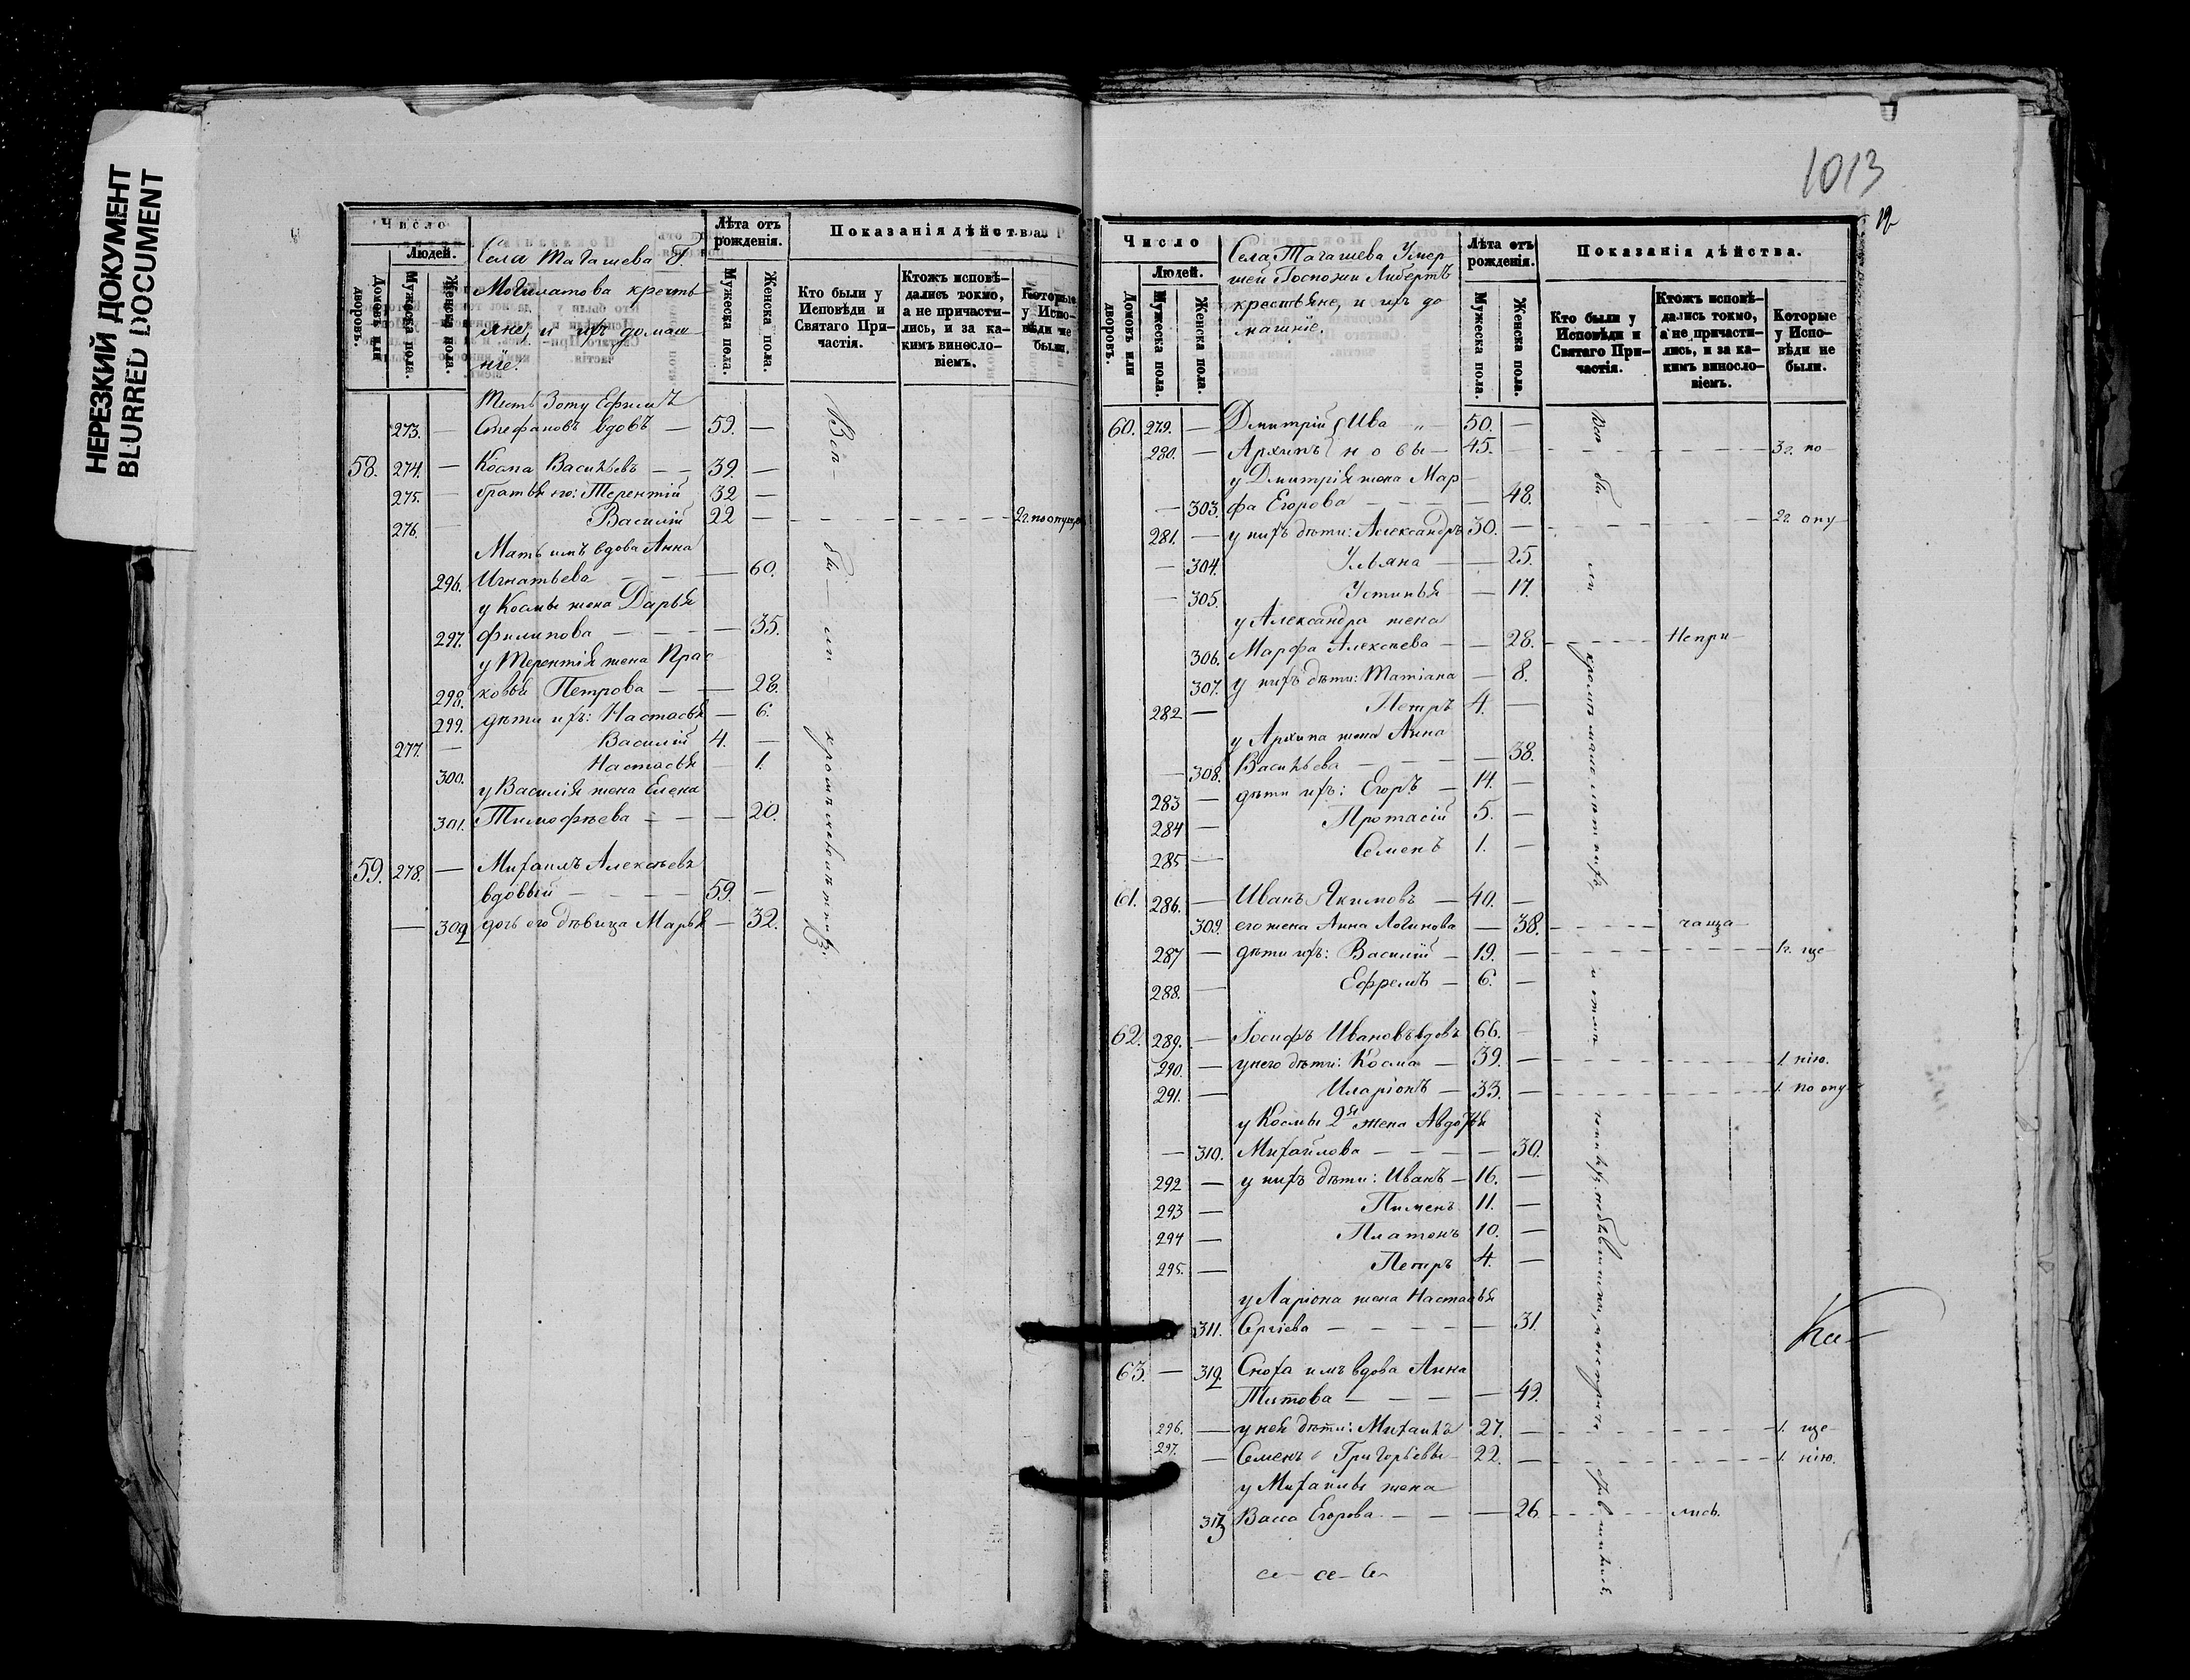 НЕРЕЗКИЙ ДОКУМЕНТ
BLURRED DOCUMENT
Число
Людей.
Домовъ или дворовъ.
Мужеска пола.
Женска пола.
Села Тагашева Г.
крестья
яне, и ихъ домаш
ніе.
Лѣта отъ рожденія.
Мужеска пола.
Женска пола.
Показанія дѣйства.
Кто были у Исповѣди и Святаго Причастія.
Ктожъ исповѣдались токмо, а не причастились, и за какимъ винословіемъ.
Которые у Исповѣди не были.
Тесть Зоту Ефимъ
273. — Стефановъ вдовъ — 59. —
58. 274. — Косма Васильевъ — — 39. —
275. — братья его: Терентій 32 —
276. — Василій 22 — 2г. по опущ
Мать имъ вдова Анна
296. Игнатьева — — — 60.
у Космы жена Дарья
297. Филипова — — — 35.
у Терентія жена Прас
298. ковья Петрова — — 28.
299. дѣти ихъ: Настасья — 6.
277. — Василій 4. —
300. Настасья — 1.
у Василія жена Елена
301. Тимофѣева — — — 20.
59. 278. — Михаилъ Алексѣевъ
вдовый — — — 59. —
— 302 дочь его дѣвица Марья — 32.
Всѣ — бы — ли — кромѣ малолѣтнихъ.
1013
12
Число
Людей.
Домовъ или дворовъ.
Мужеска пола.
Женска пола.
Села Тагашева Умер
шей Госпожи Либертъ
крестьяне, и ихъ до
машніе.
Лѣта отъ рожденія.
Мужеска пола.
Женска пола.
Показанія дѣйства.
Кто были у Исповѣди и Святаго Причастія.
Ктожъ исповѣдались токмо, а не причастились, и за какимъ винословіемъ.
Которые у Исповѣди не были.
60. 279. — Дмитрій Ива „ 50. —
280. — Архипъ новы — 45. — 3г. по
у Дмитрія жена Мар
— 303. фа Егорова — — — 48.
281. — у нихъ дѣти: Александръ 30. — 2г. опу
— 304. Ульяна — — 25.
— 305. Устинья — 17.
у Александра жена
306. Марфа Алексѣева — — 28. — Непри
307. у нихъ дѣти: Татіана — 8.
282 — Петръ 4. —
у Архипа жена Анна
— 308. Васильева — — — 38.
283 — дѣти ихъ: Егоръ — 14. —
284 — Протасій 5. —
285 — Семенъ 1. —
61. 286. — Иванъ Якимовъ — 40. —
309. его жена Анна Логинова — 38. — чаща
287 — дѣти ихъ: Василій — 19. — 1г. ще
288. — Ефремъ — 6. —
62. 289. — Іосифъ Ивановъ вдовъ 66. —
290. — у него дѣти: Косма — 39. — 1. нію.
291. — Иларіонъ — 33. — 1. по опу
у Космы 2я жена Авдотья
— 310. Михайлова — — — 30.
292 — у нихъ дѣти: Иванъ — 16. —
293 — Пименъ 11. —
294 — Платонъ 10. —
295. — Петръ 4. —
у Ларіона жена Настасья
311. Сергіева — — — 31.
63. — 312. Сноха имъ вдова Анна
Титова — — — 49.
296. — у нея дѣти: Михаилъ 27. — 1. ще
297. — Семенъ Григорьевы 22. — 1. нію.
у Михайлы жена
313 Васса Егорова — — — 26. — лись.
Всѣ бы ли кромѣ малолѣтнихъ,